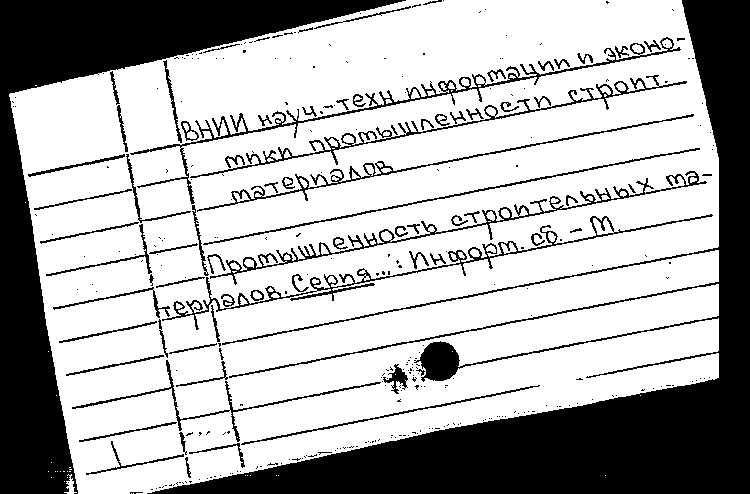 ВНИИ науч.-техн информации и эконо-
мики промышленности строит.
материалов
Промышленность строительных ма-
териалов. Серия...: Информ. сб. - М